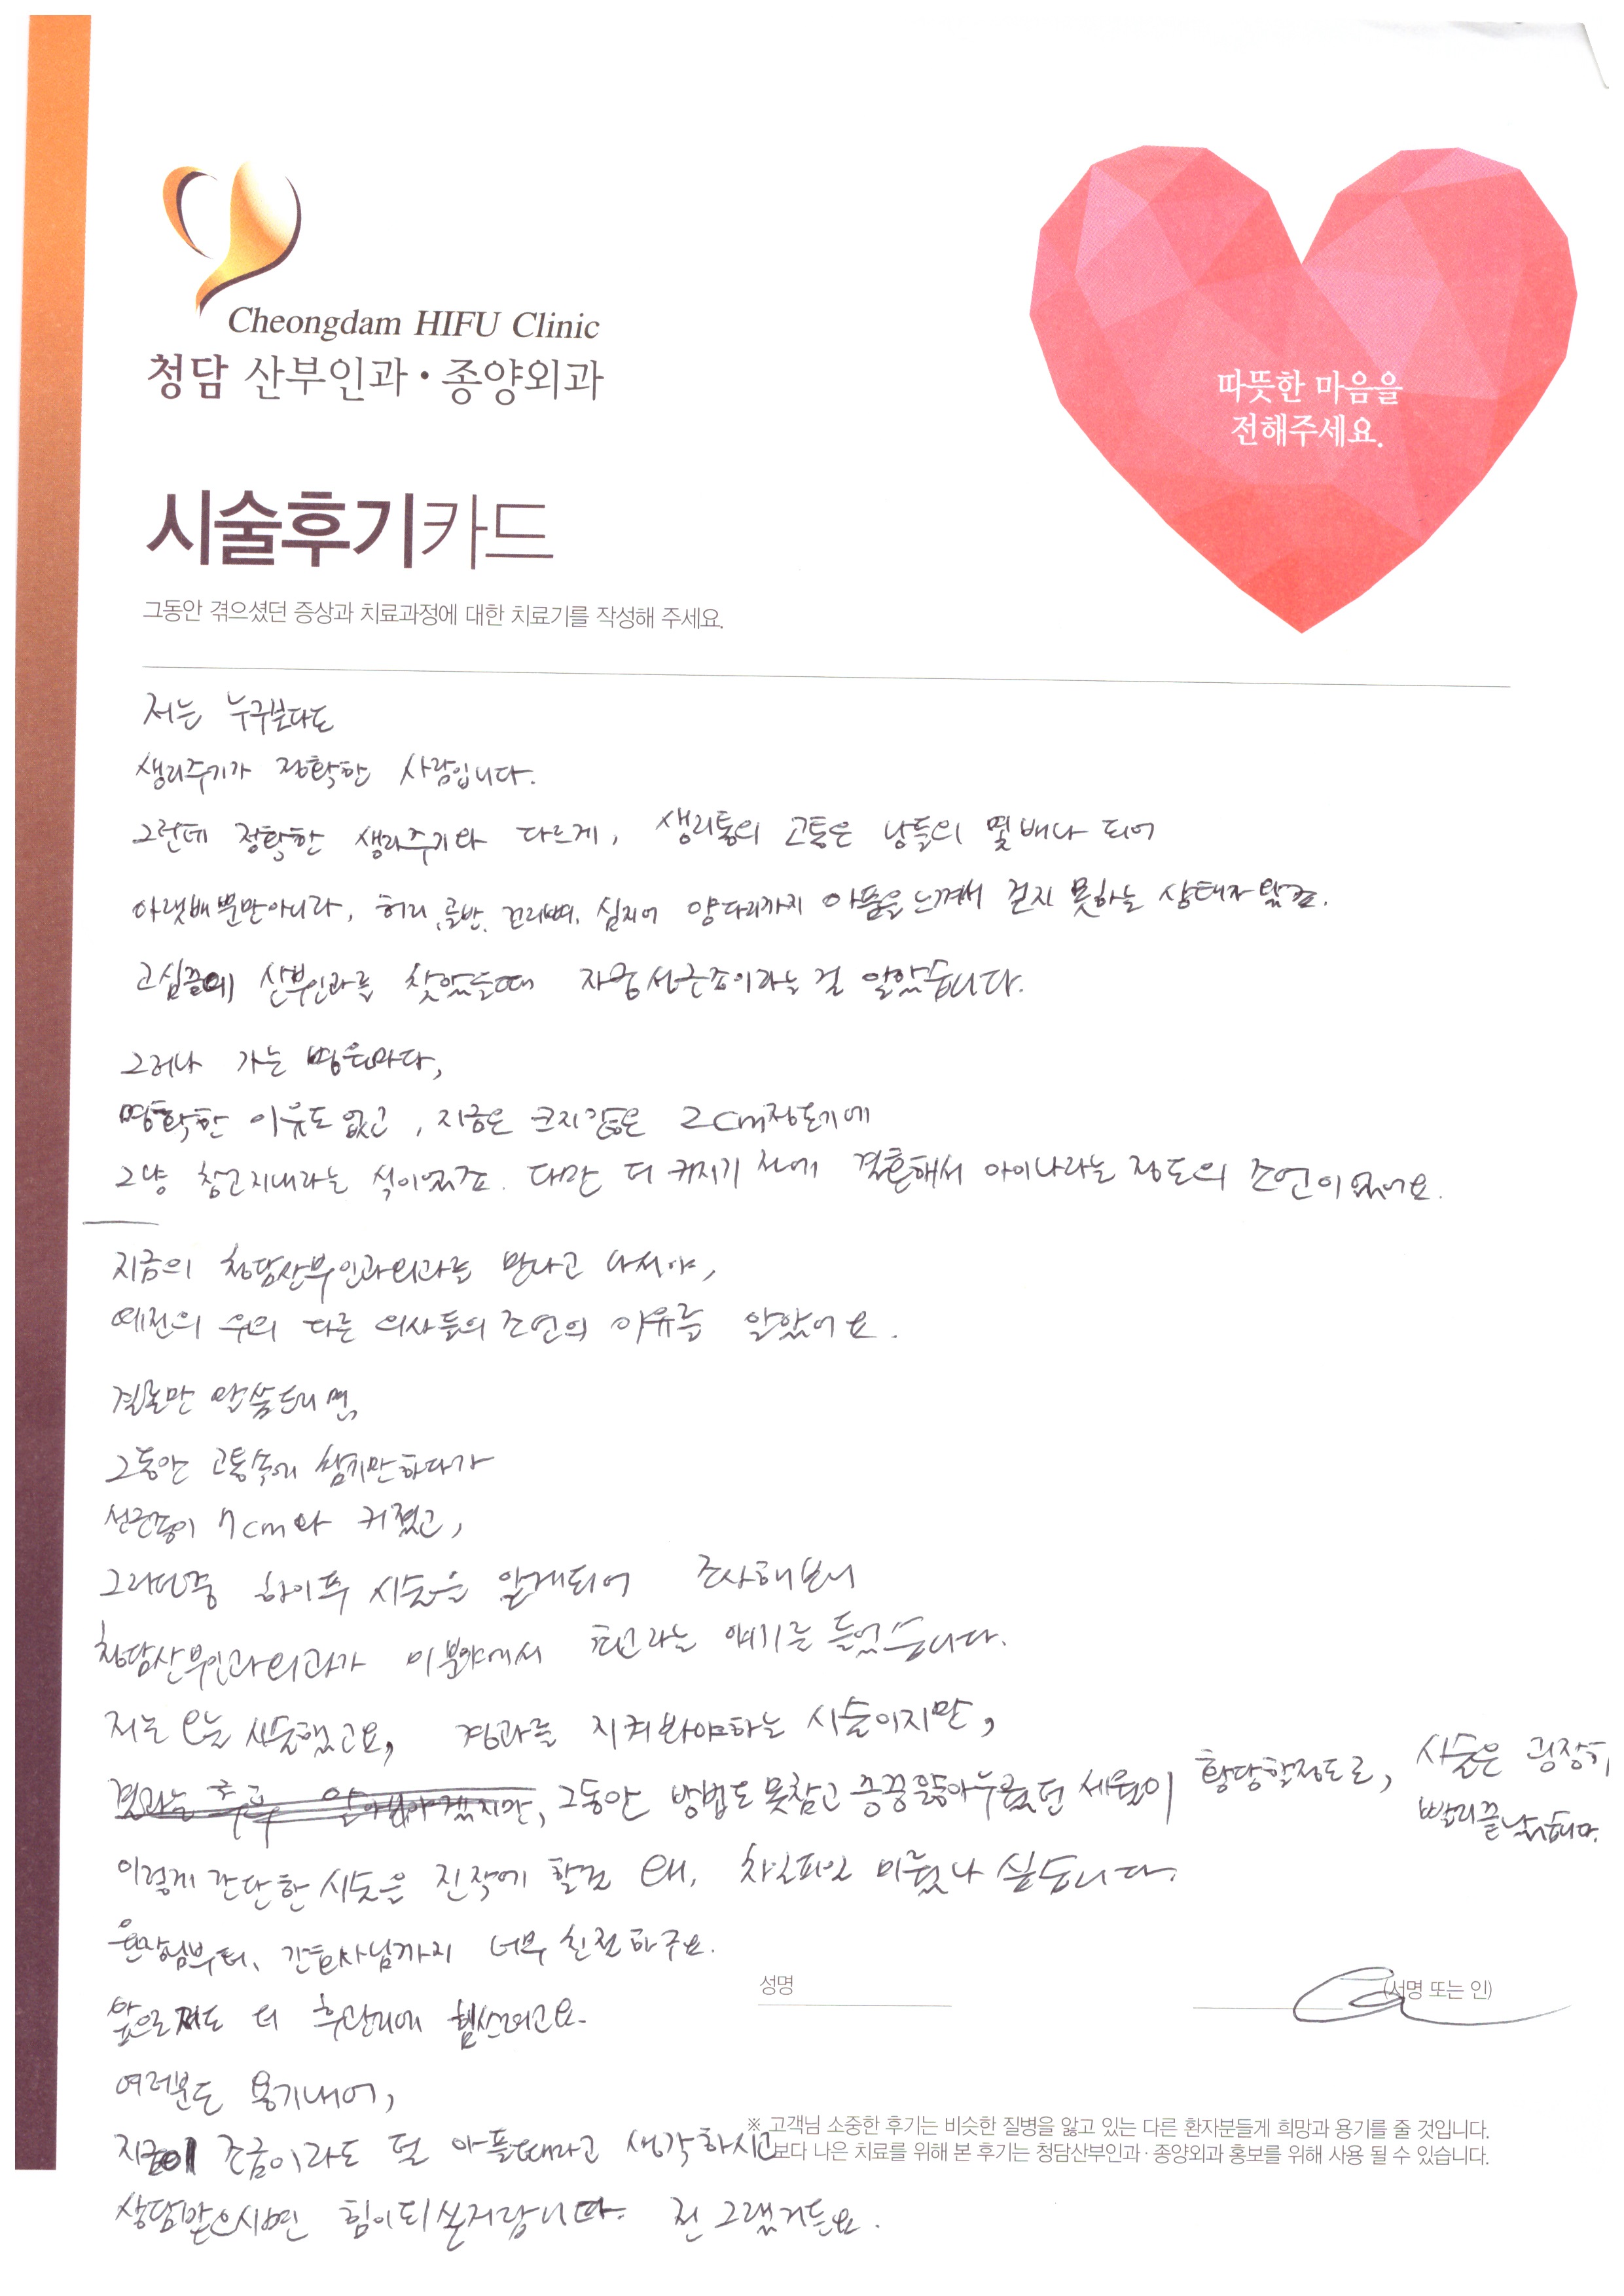 Cheongdam HIFU Clinic
청담 산부인과·종양외과
따뜻한 마음을
전해주세요.
시술후기카드
그동안 겪으셨던 증상과 치료과정에 대한 치료기를 작성해 주세요.
저는 누구보다도
생리주기가 정확한 사람입니다.
그런데 정확한 생리주기와 다르게, 생리통의 고통은 남들의 몇배나 되어
아랫배뿐만아니라, 허리, 골반, 꼬리뼈, 심지어 양다리까지 아픔을 느껴서 걷지 못하는 상태자 였죠.
고심끝에 산부인과를 찾았을때 자궁선근증이라는 걸 알았습니다.
그러나 가는 병원마다,
명확한 이유도 없고, 지금은 크지않은 2cm정도기에
그냥 참고지내라는 식이었죠. 다만 더 커지기 전에 결혼해서 아이나라는 정도의 조언이 있어요.
지금의 청담산부인과외과를 만나고 나서야,
예전의 위의 다른 의사들의 조언의 이유를 알았어요.
결론만 말씀드리면,
그동안 고통속에 참기만하다가
선근증이 7cm와 커졌고,
그러던중 하이푸 시술을 알게되어 조사해보니
청담산부인과외과가 이분야에서 최고라는 얘기를 들었습니다.
저는 오늘 시술했고요, 경과를 지켜봐야하는 시술이지만,
그동안 방법도 못찾고 끙끙앓아누웠던 세월이 황당할정도로, 시술은 굉장히
빨리끝났습니다.
이렇게 간단한 시술을 진작에 할걸 왜, 차일피일 미뤘나 싶습니다.
원장님부터, 간호사님까지 너무 친절하구요.
앞으로 저도 더 후관리에 힘쓰려고요.
여러분도 용기내어,
지금이 조금이라도 덜 아플때라고 생각하시고
상담받으시면 힘이되실거랍니다. 전 그랬거든요.
성명
(서명 또는 인)
※ 고객님 소중한 후기는 비슷한 질병을 앓고 있는 다른 환자분들게 희망과 용기를 줄 것입니다.
보다 나은 치료를 위해 본 후기는 청담산부인과·종양외과 홍보를 위해 사용 될 수 있습니다.